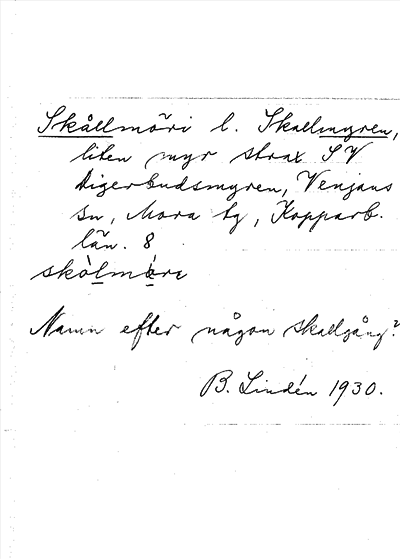 Skållmöri l. Skallmyren,
liten myr strax SV
Digerbudsmyren, Venjans
sn, Mora tg, Kopparb.
län. 8
skòlmöri
Namn efter någon skallgång?
B. Lindén 1930.